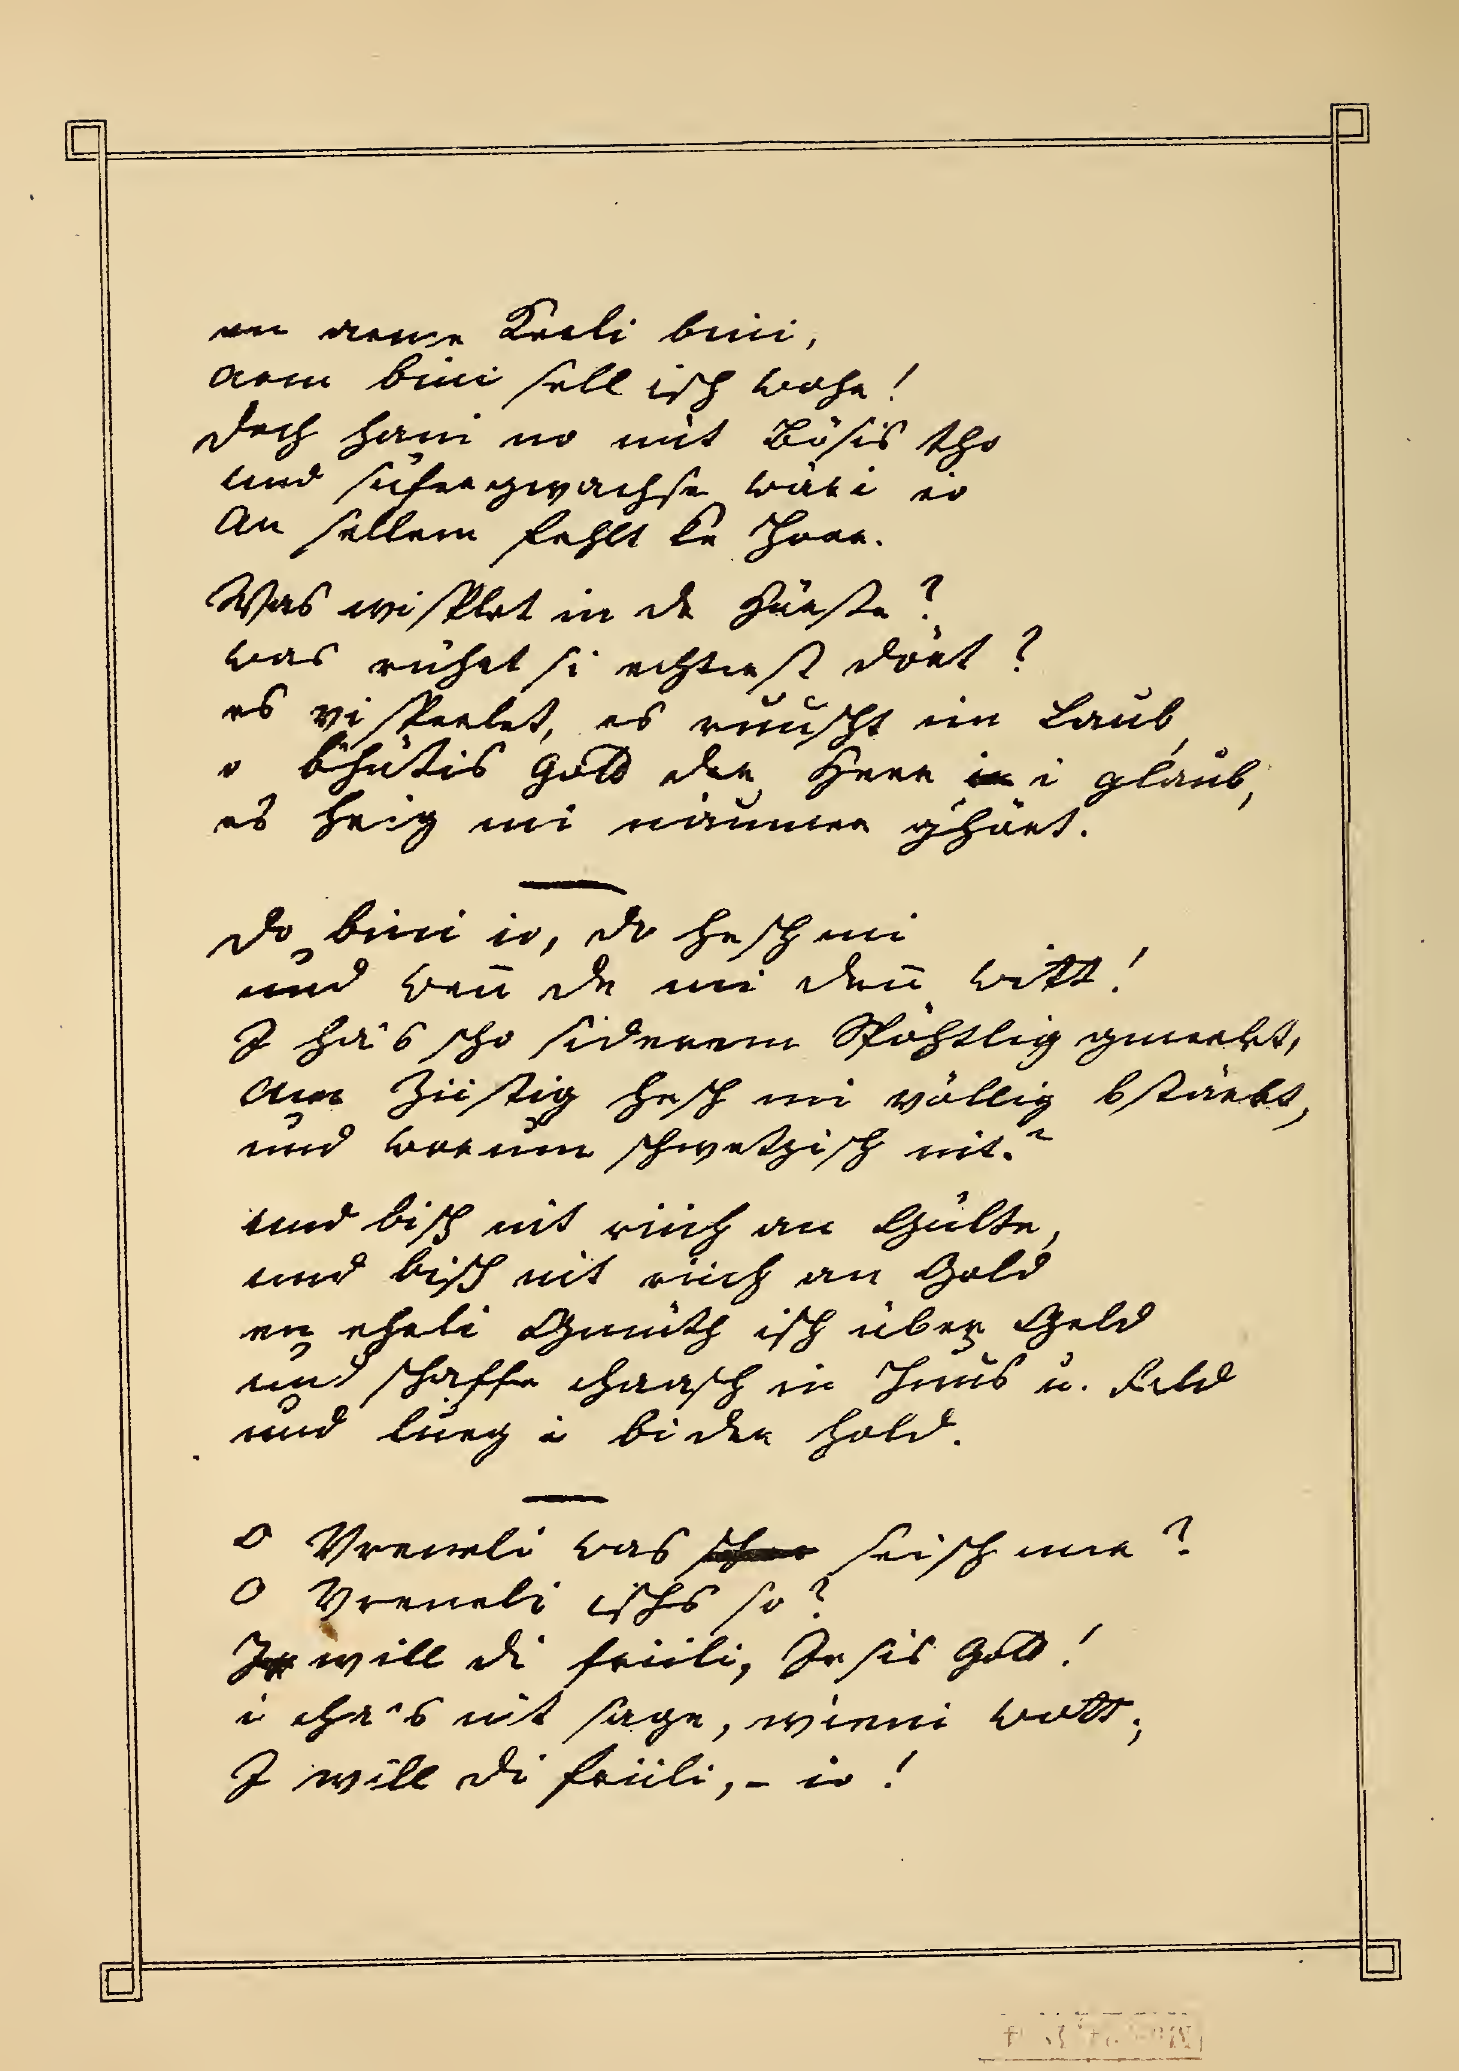 en arme Kerli bini,
arm bini sell isch wohr!
Doch hani no nüt Bösis tho
und sufer gwachse wäri io
An sellem fehlt ke Hoor.
Was wisplet in de Hürste?
was rührt si echterst dört?
es visperlet, es ruuscht im Laub,
o bhütis Gott der Herr i glaub,
es heig mi näumer ghört.
Do bini io, do hesch mi
und wenn de mi denn witt!
I ha's scho siderem Spöhtlig gmerkt,
am Ziistig hesch mi völlig bstärkt,
und worum schwetzisch nit?
und bisch nit riich an Gülte,
und bisch nit riich an Gold
en ehrli Gmüth isch über Geld
und schaffe chaasch in Huus u. Feld
und lueg i bi der hold.
O Vreneli was seisch mer?
O Vreneli ischs so?
I will di friili, Jesis Gott!
i cha's nit sage, wieni wott,
I will di friili, – io!